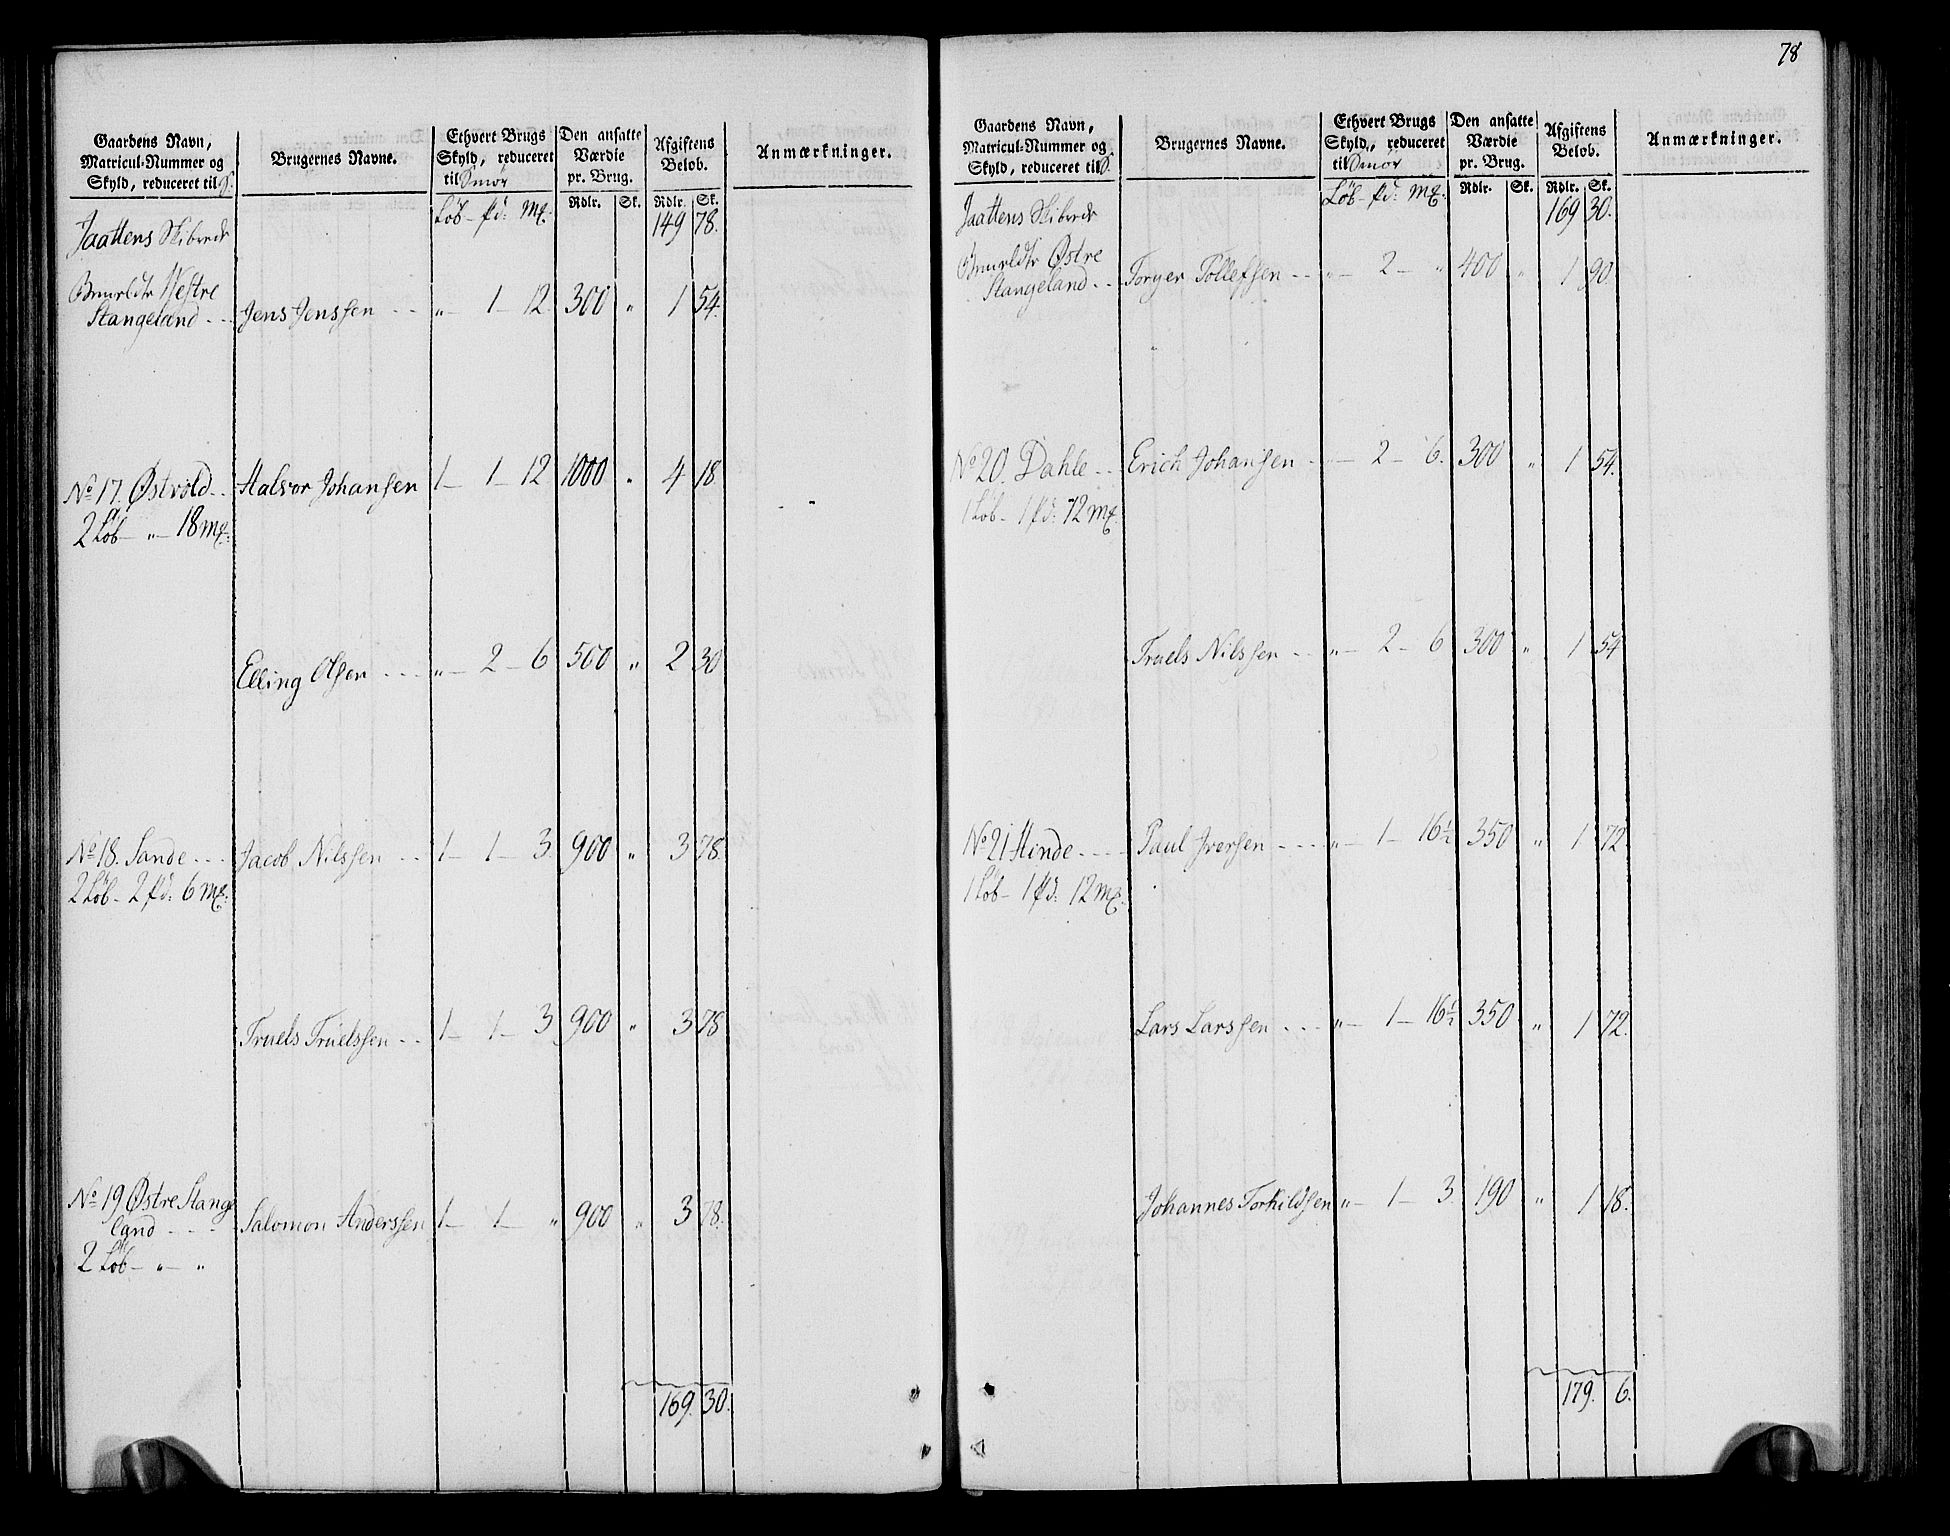 78
Gaardens Navn, Matricul-Nummer og Skyld, reduceret til S.
Brugernes Navne.
Ethvert Brugs Skyld, reduceret til Smör
Den ansatte Værdie pr. Brug.
Afgiftens Belob.
Anmærkninger.
Löb - pd: Mk.
Rdlr. Sk. Rdlr. Sk.
Jaattens Skibrede 149 78.
Westre
Stangeland - - Jens Jenssen - - „ - 1 - 12. 300 „ 1 54.
No 17. Østvold - - Halvor Johansen 1 - 1 - 12 1000 „ 4 18.
2 Löb - „ - 18 mk.
Elling Olsen - - - „ - 2 - 6 500 „ 2 30
No 18. Sande - - - Jacob Nilssen - - 1 - 1 - 3. 900 „ 3 78.
2 Löb - 2 pd: 6 mk.
Truels Truelssen - - 1 - 1 - 3 900 „ 3 78
No 19 Østre Stange
land - - - Salomon Anderssen 1 - 1 - „ 900 „ 3 78.
2 Löb - „ - „
169. 30.
Gaardens Navn, Matricul-Nummer og Skyld, reduceret til S.
Brugernes Navne.
Ethvert Brugs Skyld, reduceret til Smör
Den ansatte Værdie pr. Brug.
Afgiftens Belob.
Anmærkninger.
Löb - pd: Mk.
Rdlr. Sk. Rdlr. Sk.
Jaattens Skibrede 169 30.
Østre
Stangeland - - Torger Tollefsen - - „ - 2 - „ 400 „ 1 90.
No 20. Dahle - - Erich Johansen - „ - 2 - 6. 300 „ 1 54.
1 Löb - 1 pd: 12 mk.
Truels Nilssen - - „ - 2 - 6 300 „ 1 54
No 21 Hinde - - - - Paul Iversen - - - „ - 1 - 16½ 350 „ 1 72.
1 Löb - 1 pd: 12 mk.
Lars Larssen - - - „ - 1 - 16½ 350 „ 1 72.
Johannes Torkildsen „ - 1 - 3. 190 „ 1 18.
179. 6.